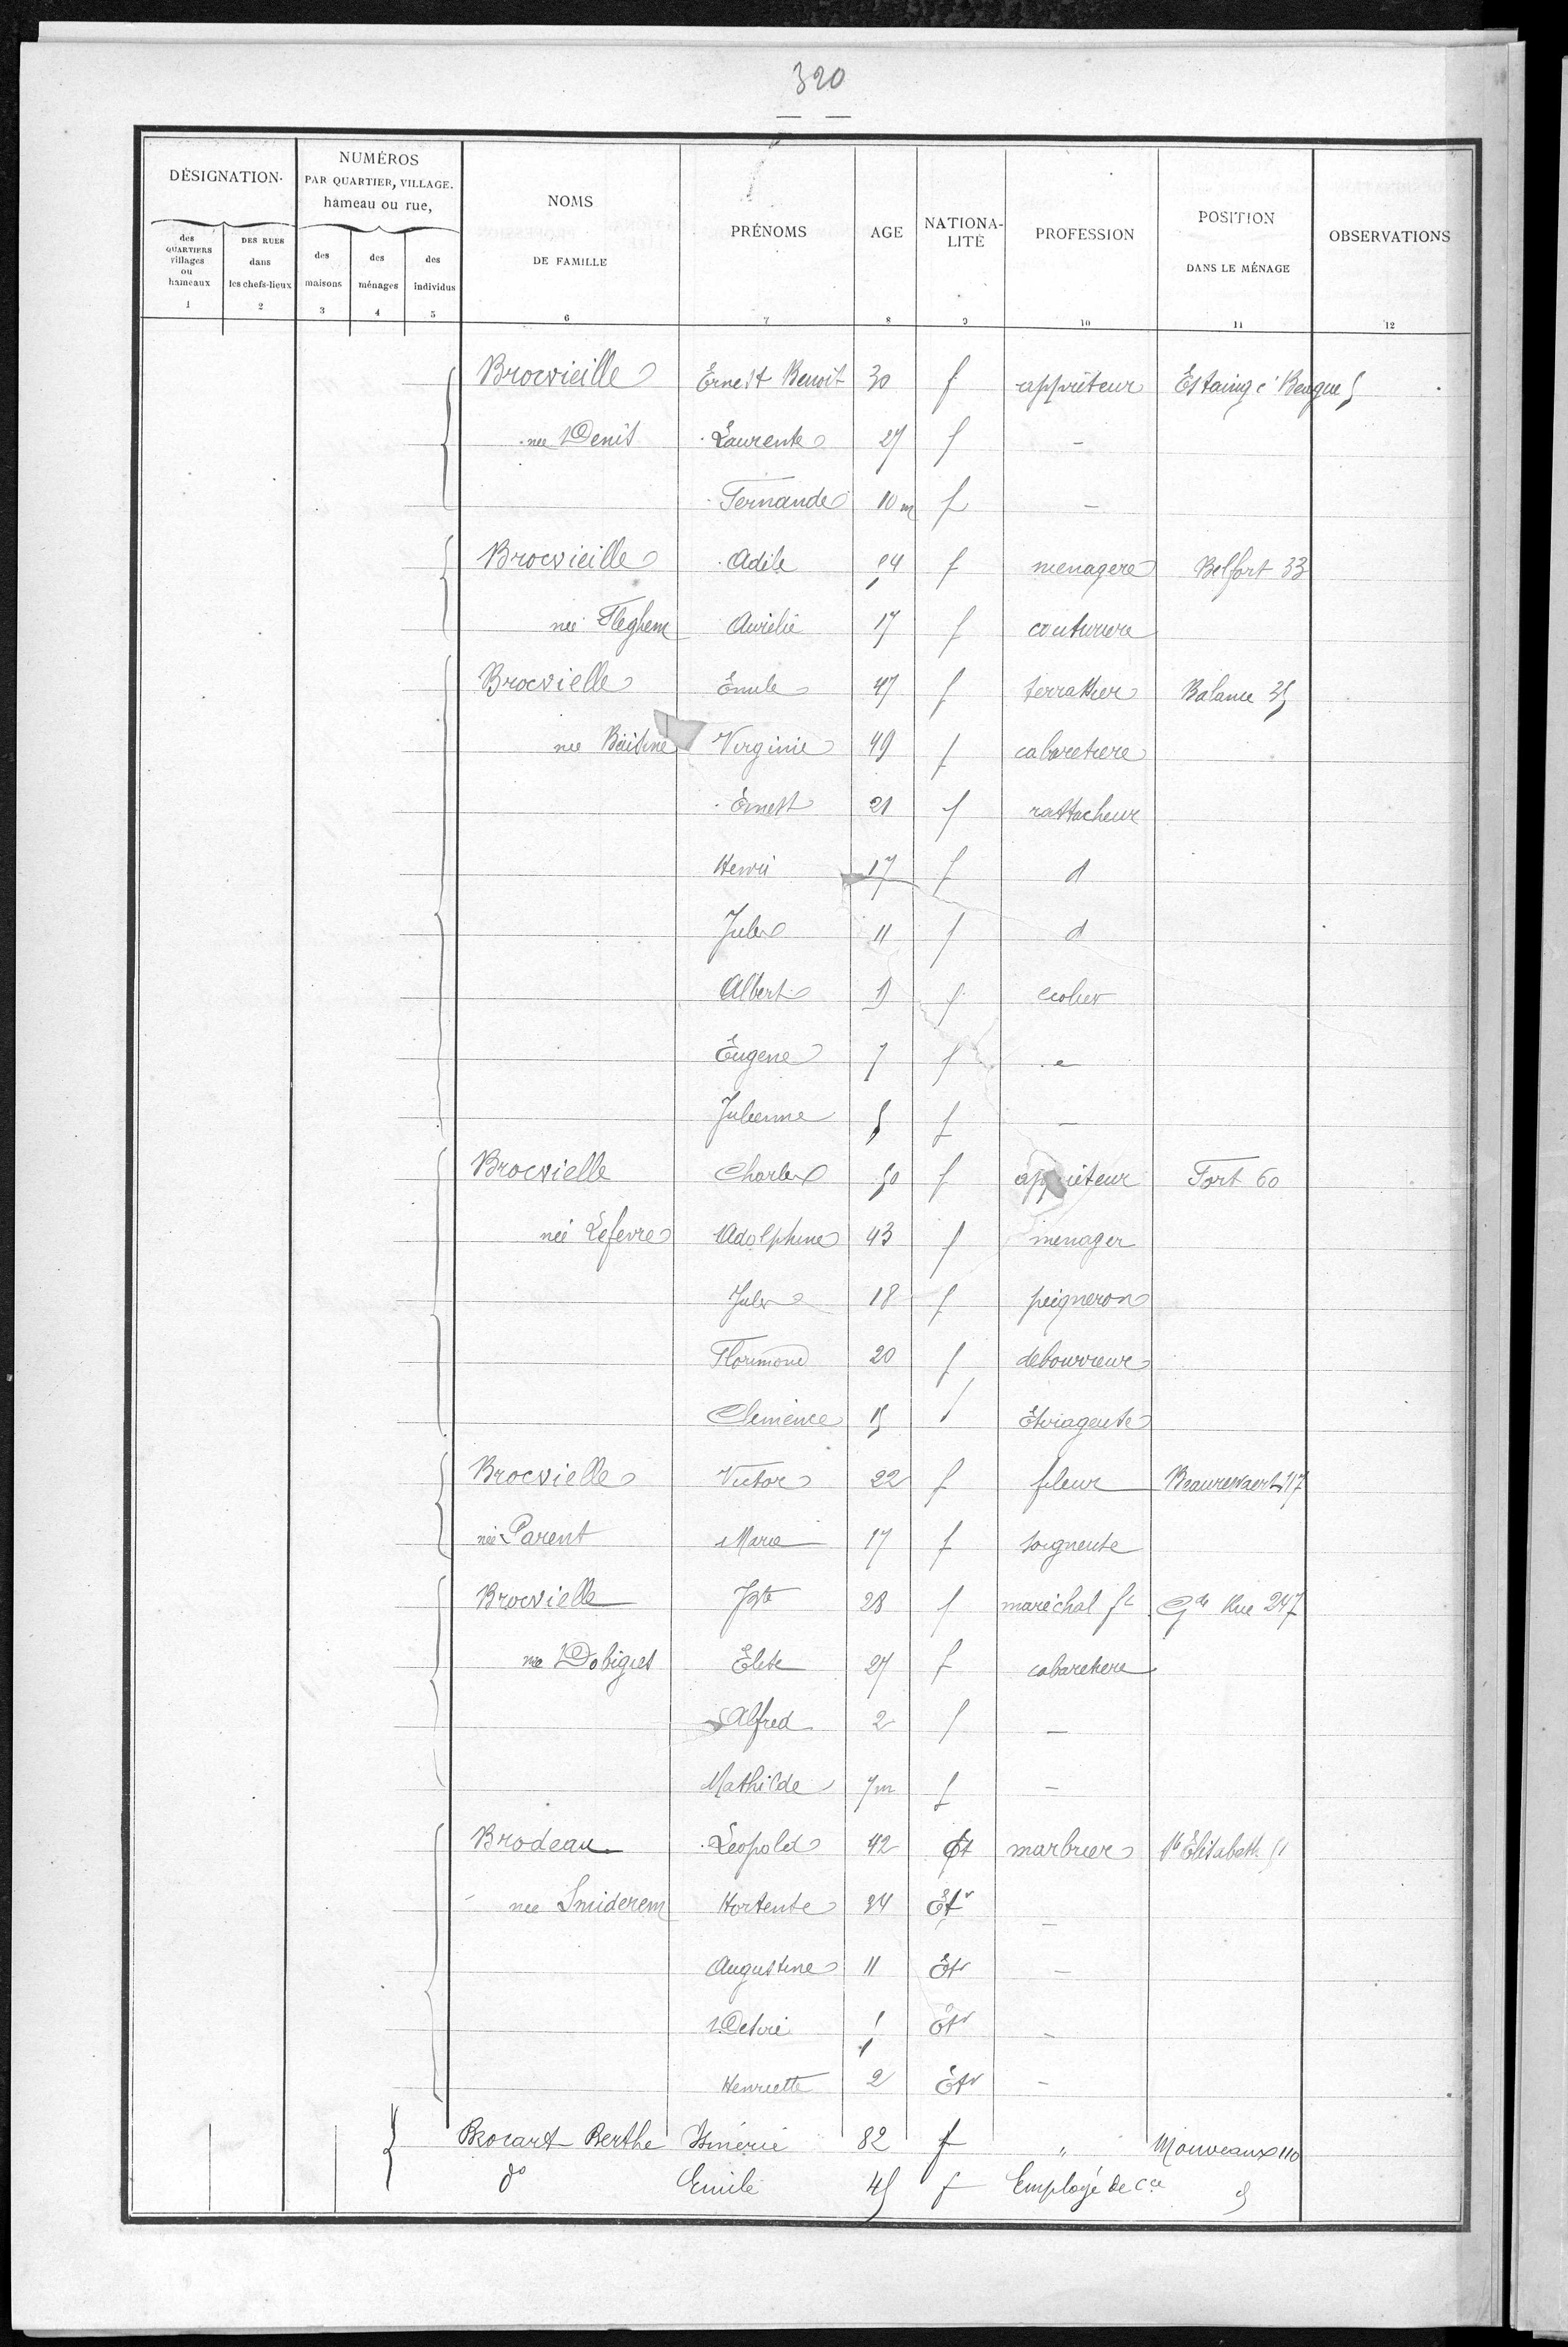 320
DÉSIGNATION.
NUMÉROS
PAR QUARTIER, VILLAGE.
hameau ou rue,
NOMS
DE FAMILLE
PRÉNOMS
AGE
NATIONA-
LITÉ
PROFESSION
POSITION
DANS LE MÉNAGE
OBSERVATIONS
des
QUARTIERS
villages
ou
hameaux
DES RUES
dans
les chefs-lieux
des
maisons
des
ménages
des
individus
1 2 3 4 5 6 7 8 9 10 11 12
Brocvieille Ernest Benoit 30 f apprêteur Estaing c
née Denis Laurente 27 f -
Fernande 10 m f -
Brocvieille Adile f menagere Belfort 33
née Fleghem Aurélie 17 f couturiere
Brocvielle Emile 47 f terrassier Balance 35
née Virginie 49 f cabaretiere
Ernest 21 f rattacheur
Henri 17 f d
Jules 11 f d
Albert 9 f ecolier
Eugene 7 f e
Julienne 5 f -
Brocvielle Charles 50 f apprêteur Fort 60
née Lefevre Adolphine 43 f menager
Jules 18 f peigneron
Florimond 20 f debourreur
Clemence 15 f
Brocvielle Victor 22 f fileur Beaurewaert 117
née Parent Marie 17 f soigneuse
Brocvielle Jste 28 f maréchal ft Gde Rue 247
née Dobigies Elise 27 f cabaretiere
Alfred 2 f -
Mathilde 7m f -
Brodeau Leopold 42 Et marbrier Ste Elisabeth 51
nee Smiderem Hortense 34 Etr -
Augustine 11 Etr -
Desiré Etr -
Henriette 2 Etr -
Brocart Berthe Isménie 82 f " Mouveaux 110
do Emile 45 f Employé de Cce d